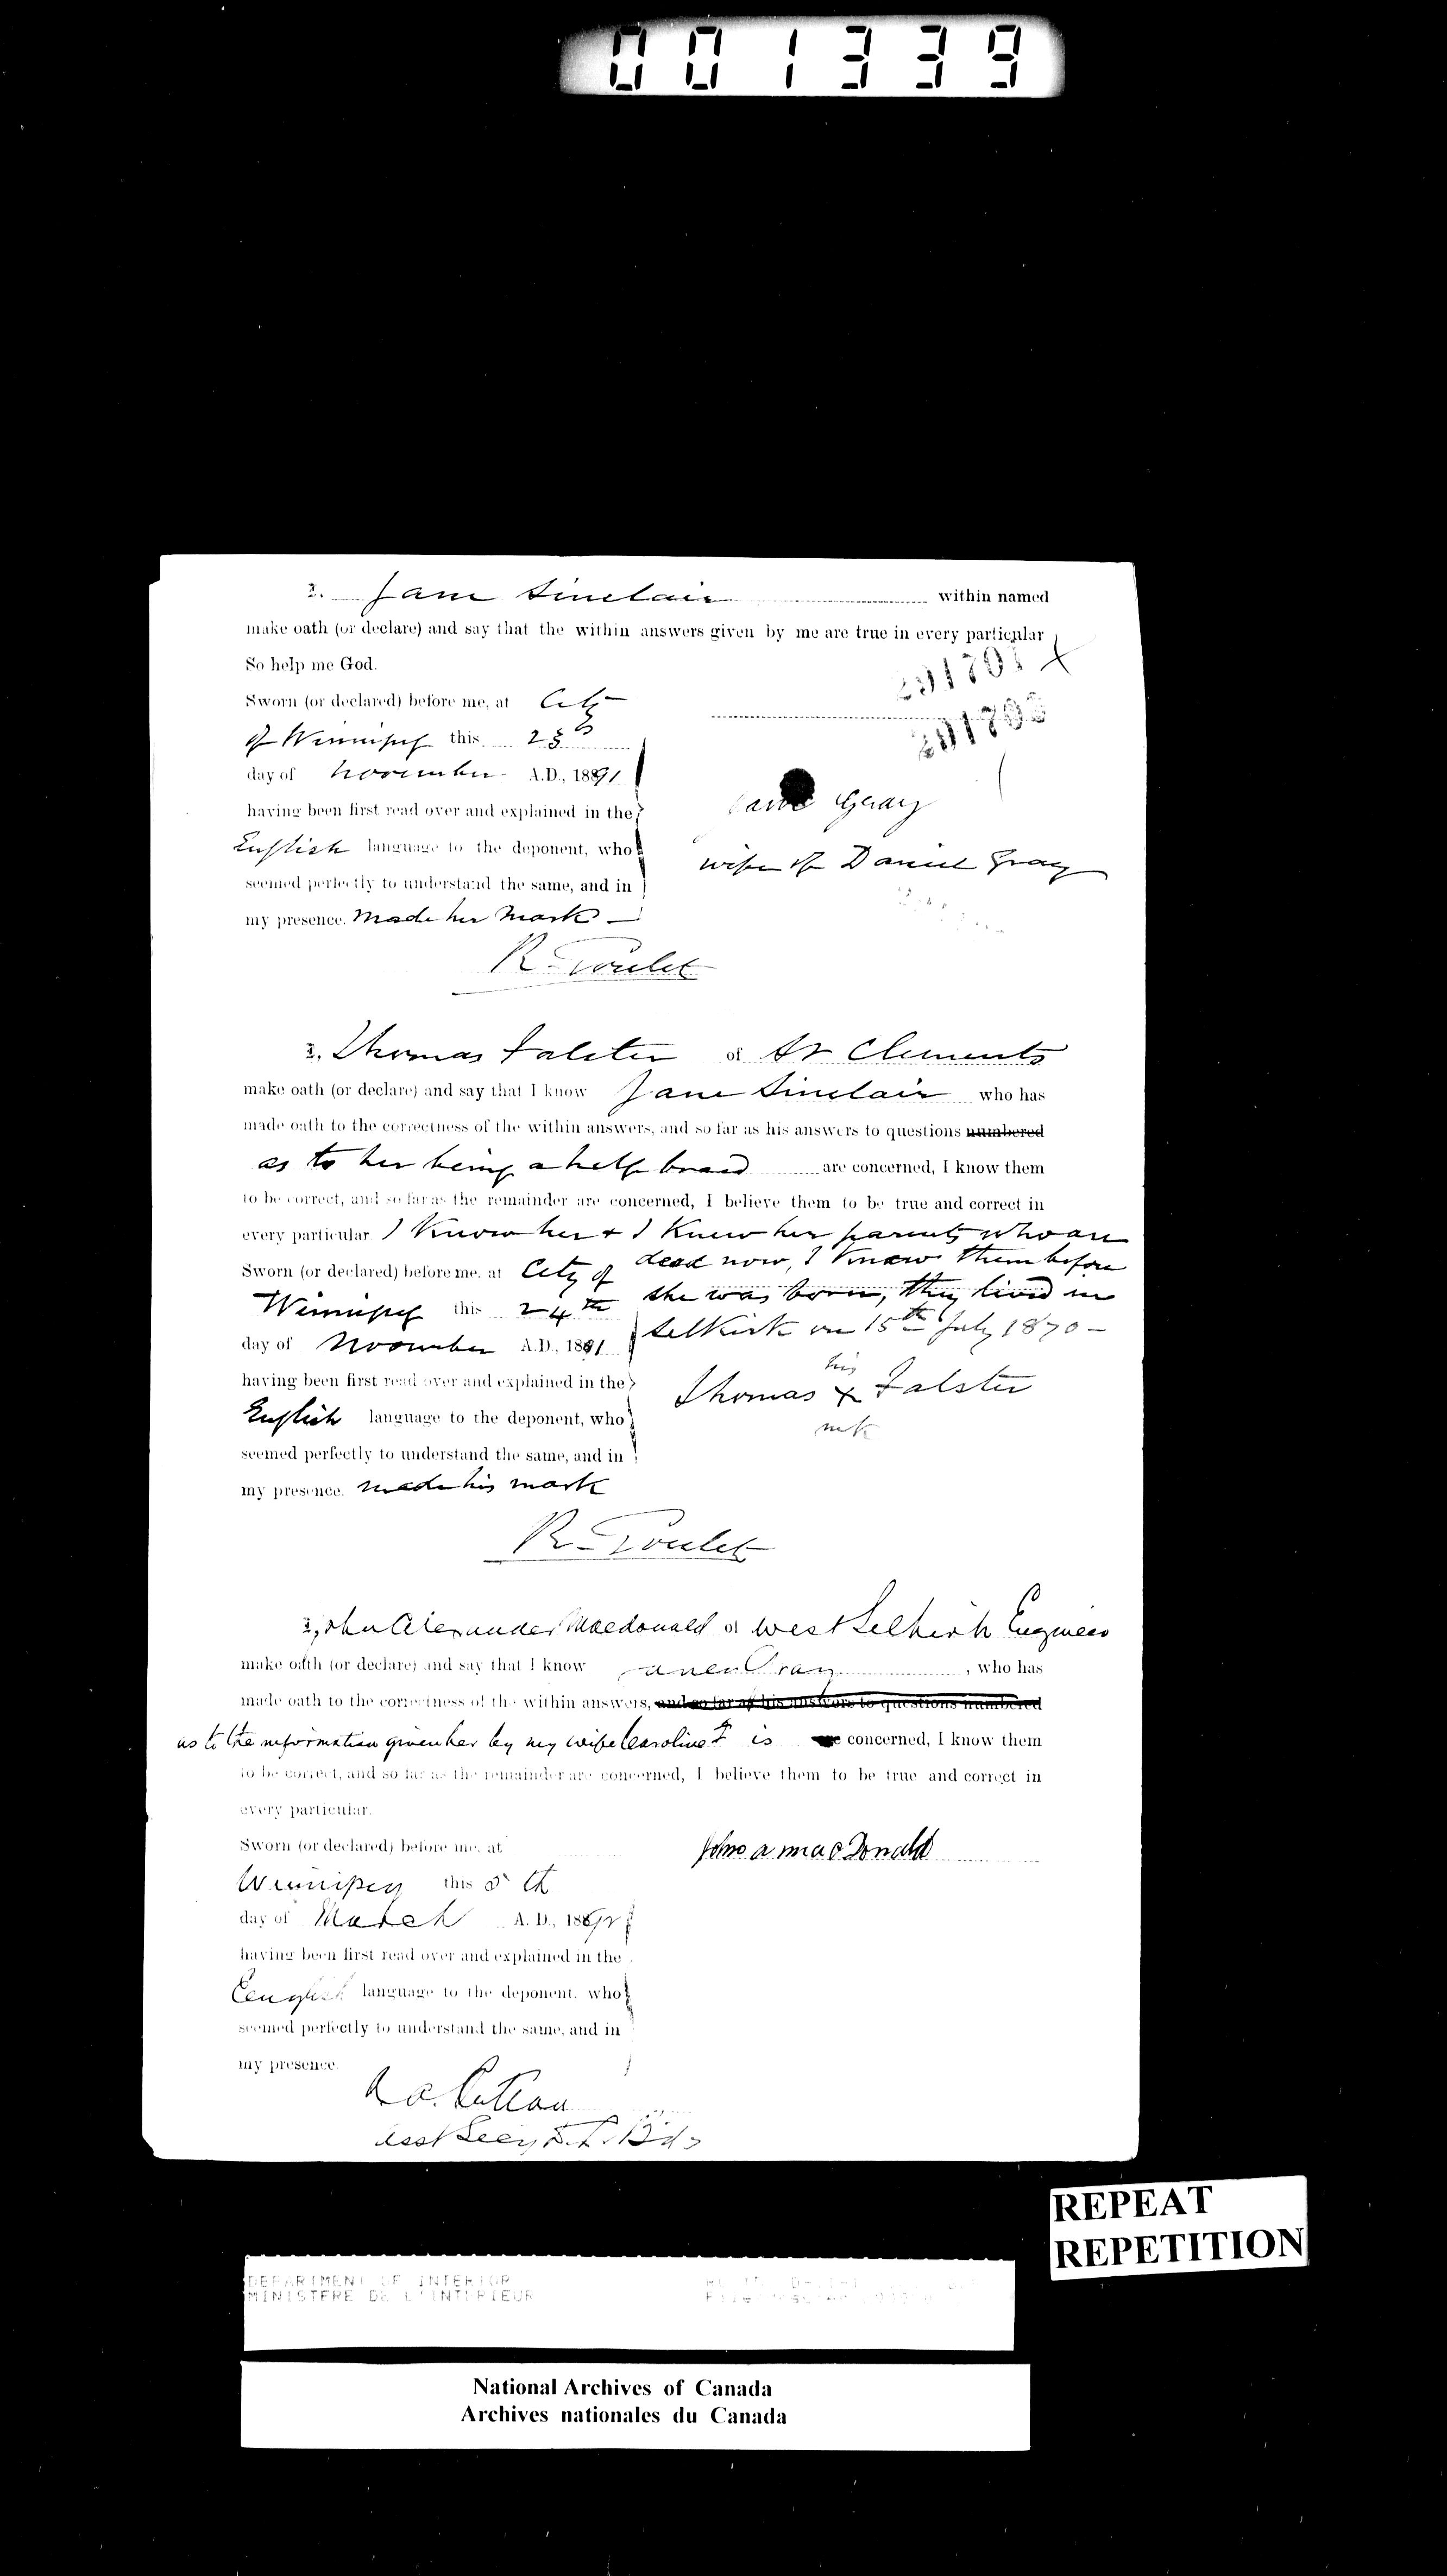 001339
I, Jane Sinclair within named
make oath (or declare) and say that the within answers given by me are true in every particular
So help me God.
201701 X
Sworn (or declared) before me, at City
of Winnipeg this 23
day of November A.D., 1891
having been first read over and explained in the
Jane Gray
English language to the deponent, who
wife of Daniel Gray
seemed perfectly to understand the same, and in
my presence. made her mark —
R. Goulet
I, Thomas Falster of St Clements
make oath (or declare) and say that I know Jane Sinclair who has
made oath to the correctness of the within answers, and so far as his answers to questions numbered
as to her being a half breed are concerned, I know them
to be correct, and so far as the remainder are concerned, I believe them to be true and correct in
every particular. I know her + I knew her parents who are
dead now, I knew them before
Sworn (or declared) before me, at City of
she was born, they lived in
Winnipeg this 24th
Selkirk on 15th July 1870 —
day of November A.D., 1891
his
having been first read over and explained in the
Thomas X Falster
English language to the deponent, who
mk
seemed perfectly to understand the same, and in
my presence. made his mark
R. Goulet
I, John Alexander Macdonald of West Selkirk Engineer
make oath (or declare) and say that I know Gray, who has
made oath to the correctness of the within answers, and so far as his answers to questions numbered
as to the information given her by my wife Caroline is concerned, I know them
to be correct, and so far as the remainder are concerned, I believe them to be true and correct in
every particular.
Sworn (or declared) before me, at
John A MacDonald
Winnipeg this 5th
day of March A. D., 1892
having been first read over and explained in the
English language to the deponent, who
seemed perfectly to understand the same, and in
my presence.
REPEAT
REPETITION
DEPARTMENT OF INTERIOR
MINISTERE DE L'INTERIEUR
National Archives of Canada
Archives nationales du Canada